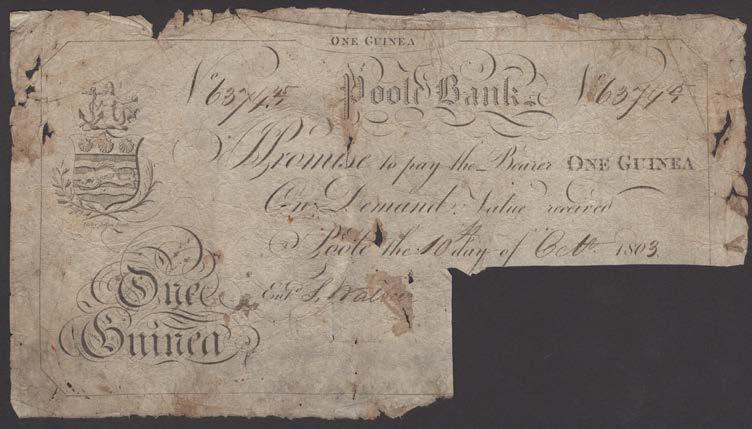 ONE GUINEA
No 63745 Poole Bank. No 63745
I Promise to pay the Bearer ONE GUINEA
On Demand. Value received
Poole the 10th day of Octr. 1803
Entd.
One
Guinea